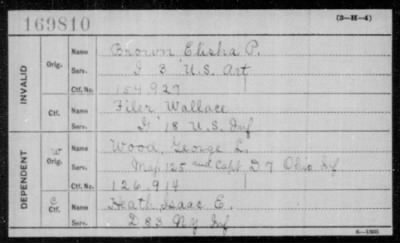 169810
(3-H-4)
INVALID
Orig.
Name Brown Elisha P.
Serv. I 3 U.S. Art
Ctf. No. 154927
Ctf.
Name Filer Wallace
Serv. G 18 U.S. Inf
DEPENDENT
Orig.
Name Wood, George L.
Serv. Maj 125 and Capt D 7 Ohio Inf
Ctf. No. 126,914
Ctf.
Name Heath Isaac E.
Serv. D 83 Ny Inf